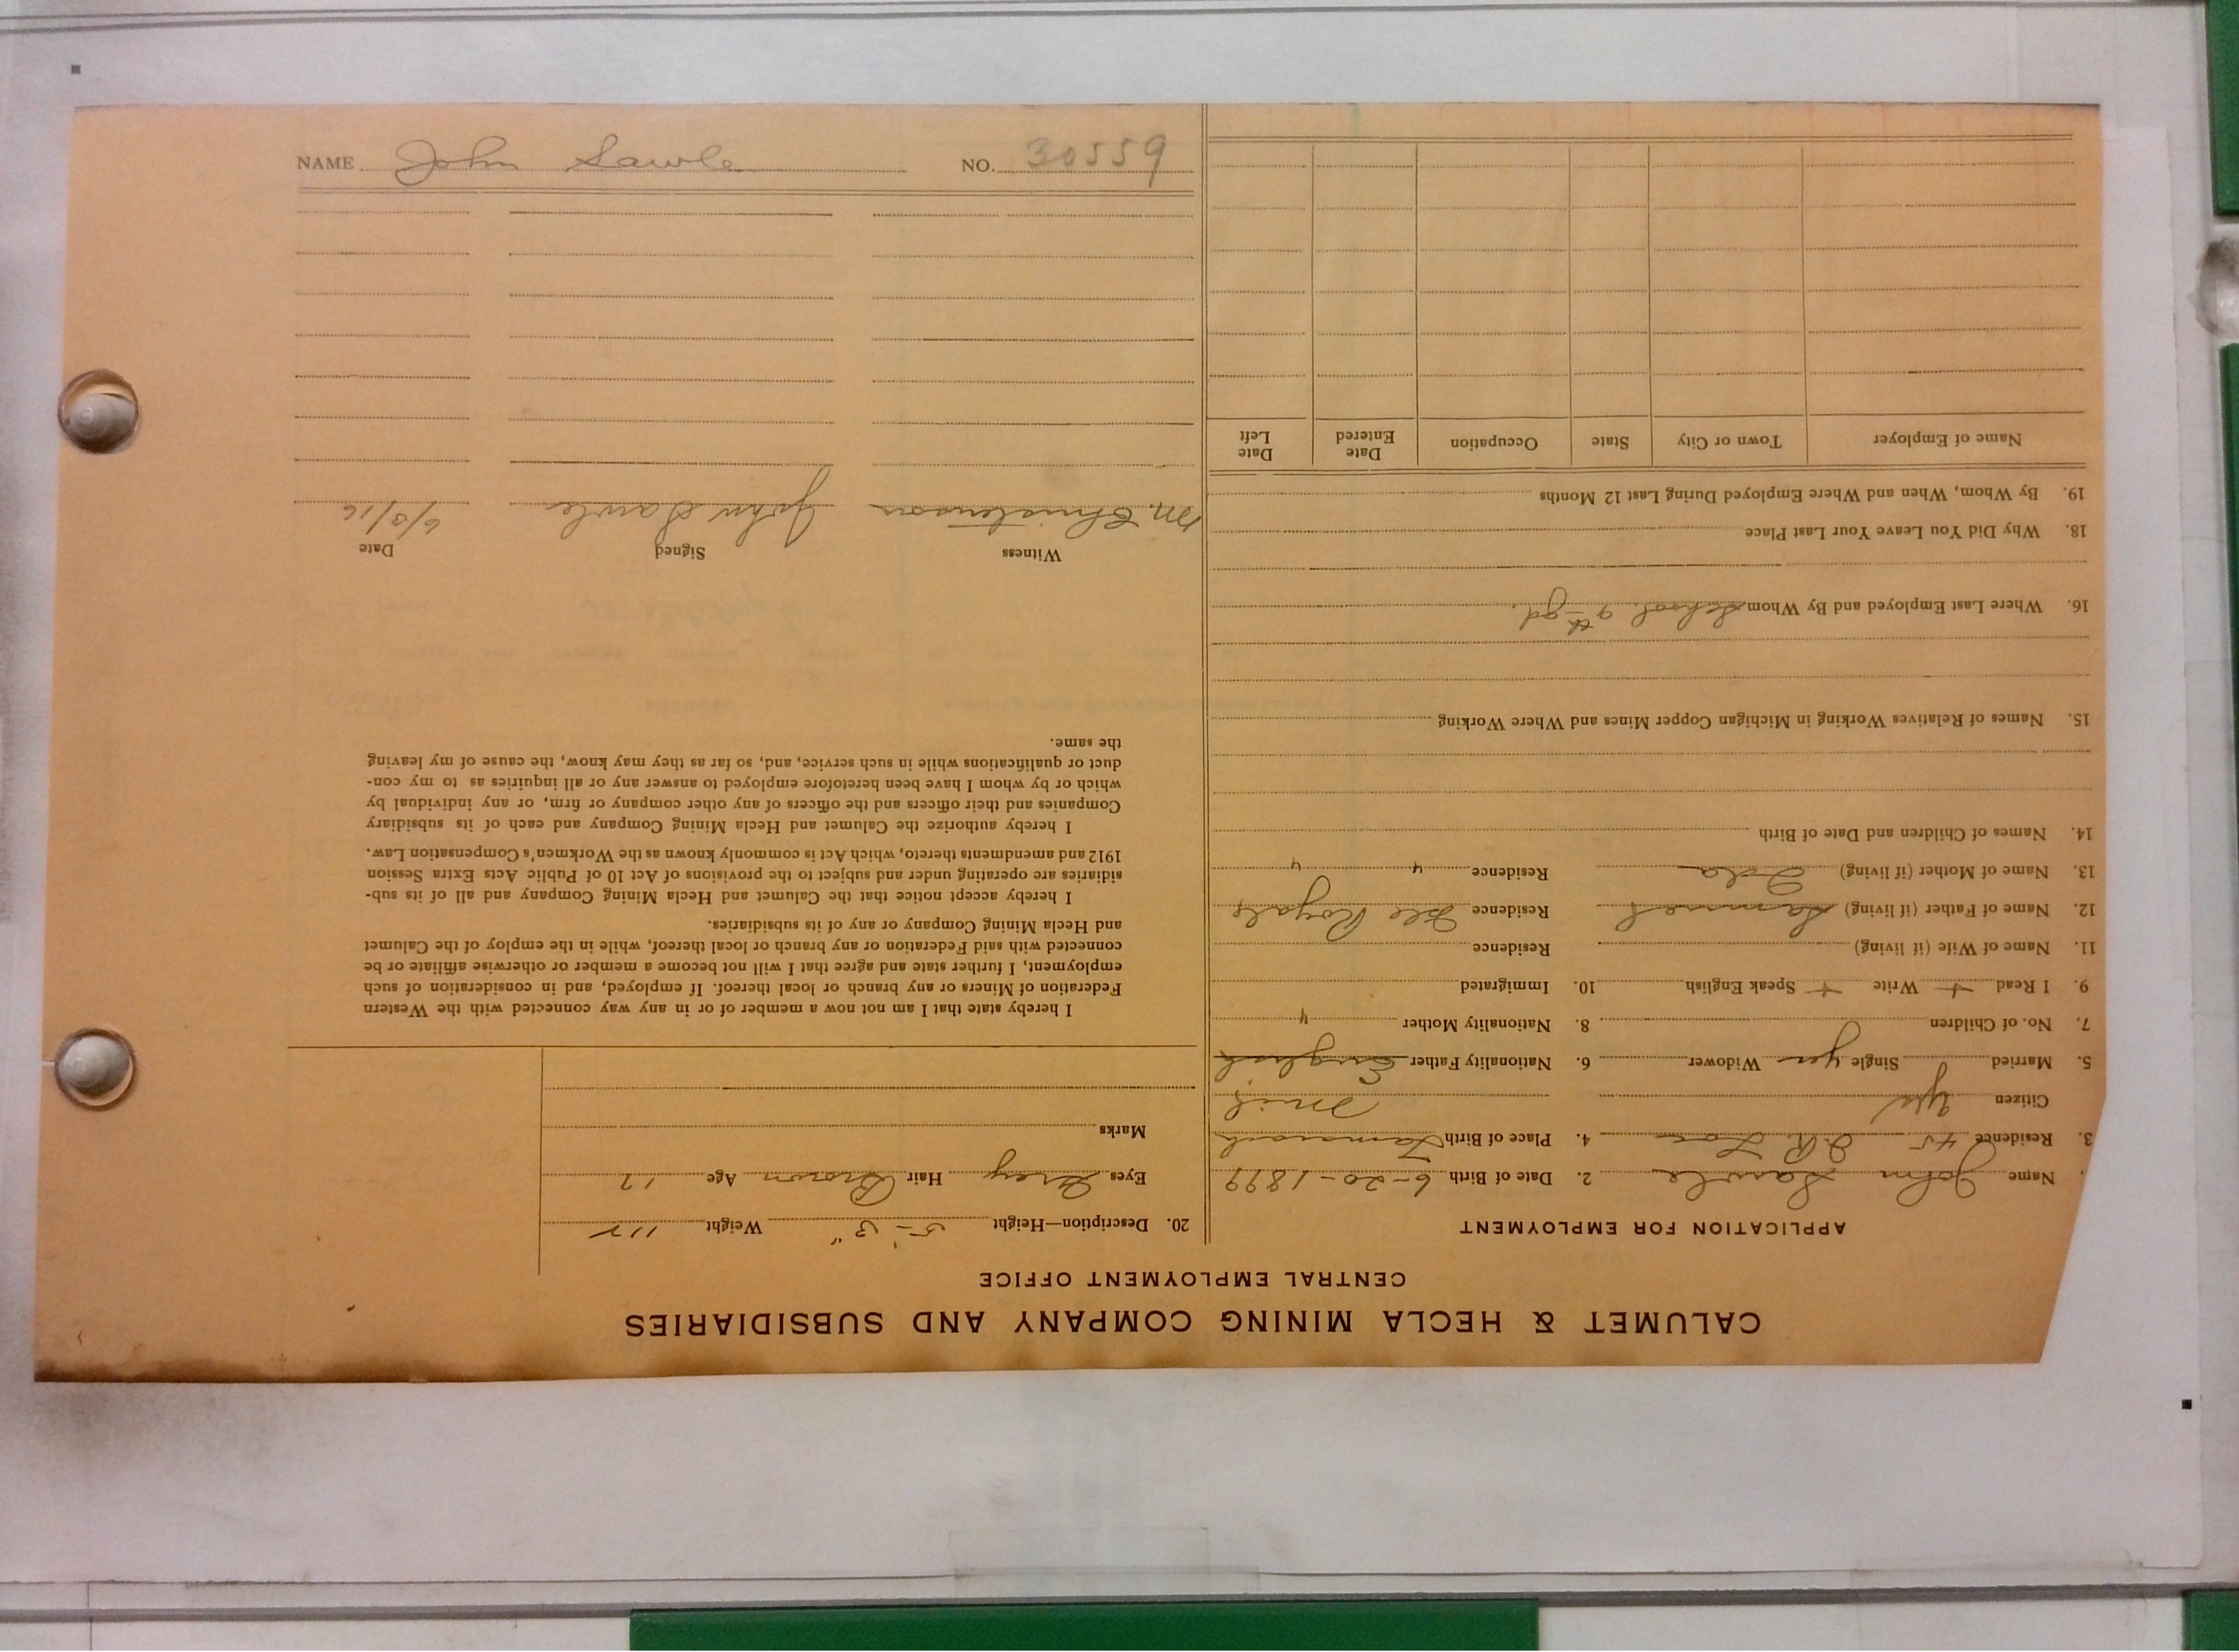 CALUMET & HECLA MINING COMPANY AND SUBSIDIARIES
CENTRAL EMPLOYMENT OFFICE
APPLICATION FOR EMPLOYMENT
. Name John Sawle 2. Date of Birth 6-20-1899
3. Residence 45 I.R. Loc 4. Place of Birth Tamarack
Citizen Yes Mich.
5. Married Single yes Widower 6. Nationality Father English
7. No. of Children 8. Nationality Mother "
9. I Read + Write + Speak English 10. Immigrated
11. Name of Wife (if living) Residence
12. Name of Father (if living) Samuel Residence Isle Royale
13. Name of Mother (if living) Ida Residence " "
14. Names of Children and Date of Birth
15. Names of Relatives Working in Michigan Copper Mines and Where Working
16. Where Last Employed and By Whom School 9th gd.
18. Why Did You Leave Your Last Place
19. By Whom, When and Where Employed During Last 12 Months
Name of Employer Town or City State Occupation Date Entered Date Left
20. Description—Height 5'-3" Weight 112
Eyes Grey Hair Brown Age 17
Marks
I hereby state that I am not now a member of or in any way connected with the Western
Federation of Miners or any branch or local thereof. If employed, and in consideration of such
employment, I further state and agree that I will not become a member or otherwise affiliate or be
connected with said Federation or any branch or local thereof, while in the employ of the Calumet
and Hecla Mining Company or any of its subsidiaries.
I hereby accept notice that the Calumet and Hecla Mining Company and all of its sub-
sidiaries are operating under and subject to the provisions of Act 10 of Public Acts Extra Session
1912 and amendments thereto, which Act is commonly known as the Workmen's Compensation Law.
I hereby authorize the Calumet and Hecla Mining Company and each of its subsidiary
Companies and their officers and the officers of any other company or firm, or any individual by
which or by whom I have been heretofore employed to answer any or all inquiries as to my con-
duct or qualifications while in such service, and, so far as they may know, the cause of my leaving
the same.
Witness Signed Date
M. Christenson John Sawle 6/3/16
NAME John Sawle NO. 30559